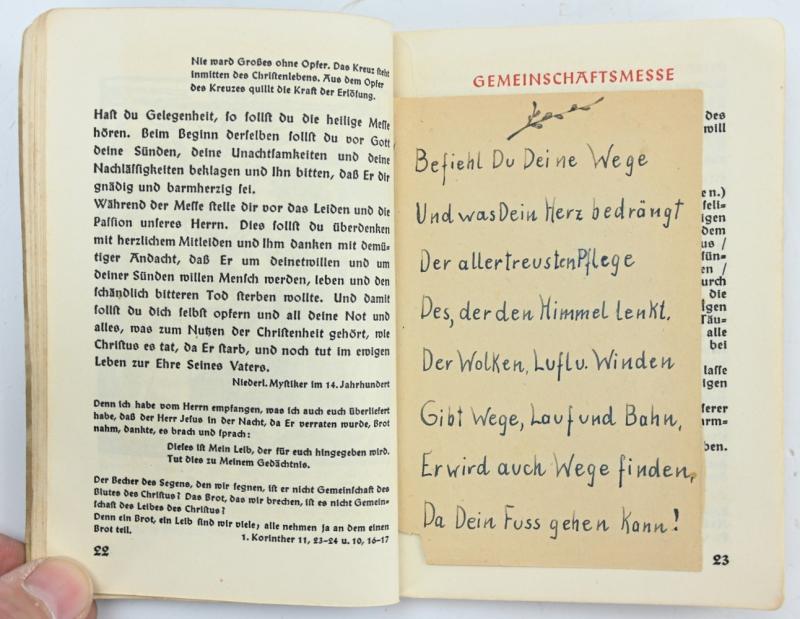 Nie ward Großes ohne Opfer. Das Kreuz steht
inmitten des Christenlebens. Aus dem Opfer
des Kreuzes quillt die Kraft der Erlösung.
Hast du Gelegenheit, so sollst du die heilige Messe
hören. Beim Beginn derselben sollst du vor Gott
deine Sünden, deine Unachtsamkeiten und deine
Nachlässigkeiten beklagen und Ihn bitten, daß Er dir
gnädig und barmherzig sei.
Während der Messe stelle dir vor das Leiden und die
Passion unseres Herrn. Dies sollst du überdenken
mit herzlichem Mitleiden und Ihm danken mit demü-
tiger Andacht, daß Er um deinetwillen und um
deiner Sünden willen Mensch werden, leben und den
schändlich bitteren Tod sterben wollte. Und damit
sollst du dich selbst opfern und all deine Not und
alles, was zum Nutzen der Christenheit gehört, wie
Christus es tat, da Er starb, und noch tut im ewigen
Leben zur Ehre Seines Vaters.
Niederl. Mystiker im 14. Jahrhundert
Denn ich habe vom Herrn empfangen, was ich auch euch überliefert
habe, daß der Herr Jesus in der Nacht, da Er verraten wurde, Brot
nahm, dankte, es brach und sprach:
Dieses ist Mein Leib, der für euch hingegeben wird.
Tut dies zu Meinem Gedächtnis.
Der Becher des Segens, den wir segnen, ist er nicht Gemeinschaft des
Blutes des Christus? Das Brot, das wir brechen, ist es nicht Gemein-
schaft des Leibes des Christus?
Denn ein Brot, ein Leib sind wir viele; alle nehmen ja an dem einen
Brot teil.
1. Korinther 11, 23–24 u. 10, 16–17
22
GEMEINSCHAFTSMESSE
Befiehl Du Deine Wege
Und was Dein Herz bedrängt
Der allertreusten Pflege
Des, der den Himmel lenkt.
Der Wolken, Luft u. Winden
Gibt Wege, Lauf und Bahn,
Er wird auch Wege finden,
Da Dein Fuss gehen kann!
des
will
en.)
igen
dem
durch
die
alle
bei
lasse
igen
23